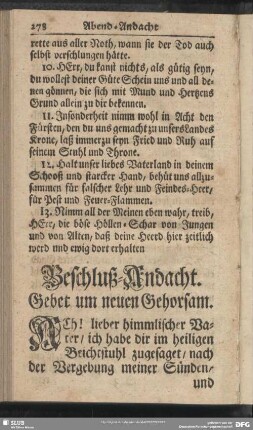 278 Abend-Andacht
rette aus aller Noth, wann sie der Tod auch
selbst verschlungen hätte.
10. HErr, du kanst nichts, als gütig seyn,
du wollest deiner Güte Schein uns und all de-
nen gönnen, die sich mit Mund und Hertzens
Grund allein zu dir bekennen.
11. Insonderheit nimm wohl in Acht den
Fürsten, den du uns gemacht zu unsers Landes
Krone, laß immerzu seyn Fried und Ruh auf
seinem Stuhl und Throne.
12. Halt unser liebes Vaterland in deinem
Schooß und starcker Hand, behüt uns allzu-
sammen für falscher Lehr und Feindes-Heer,
für Pest und Feuer-Flammen.
13. Nimm all der Meinen eben wahr, treib,
HErr, die böse Höllen-Schar von Jungen
und von Alten, daß deine Heerd hier zeitlich
werd und ewig dort erhalten
Beschluß-Andacht.
Gebet um neuen Gehorsam.
ACh! lieber himmlischer Va-
ter/ ich habe dir im heiligen
Beichtstuhl zugesaget/ nach
der Vergebung meiner Sünden/
und
SLUB
DFG